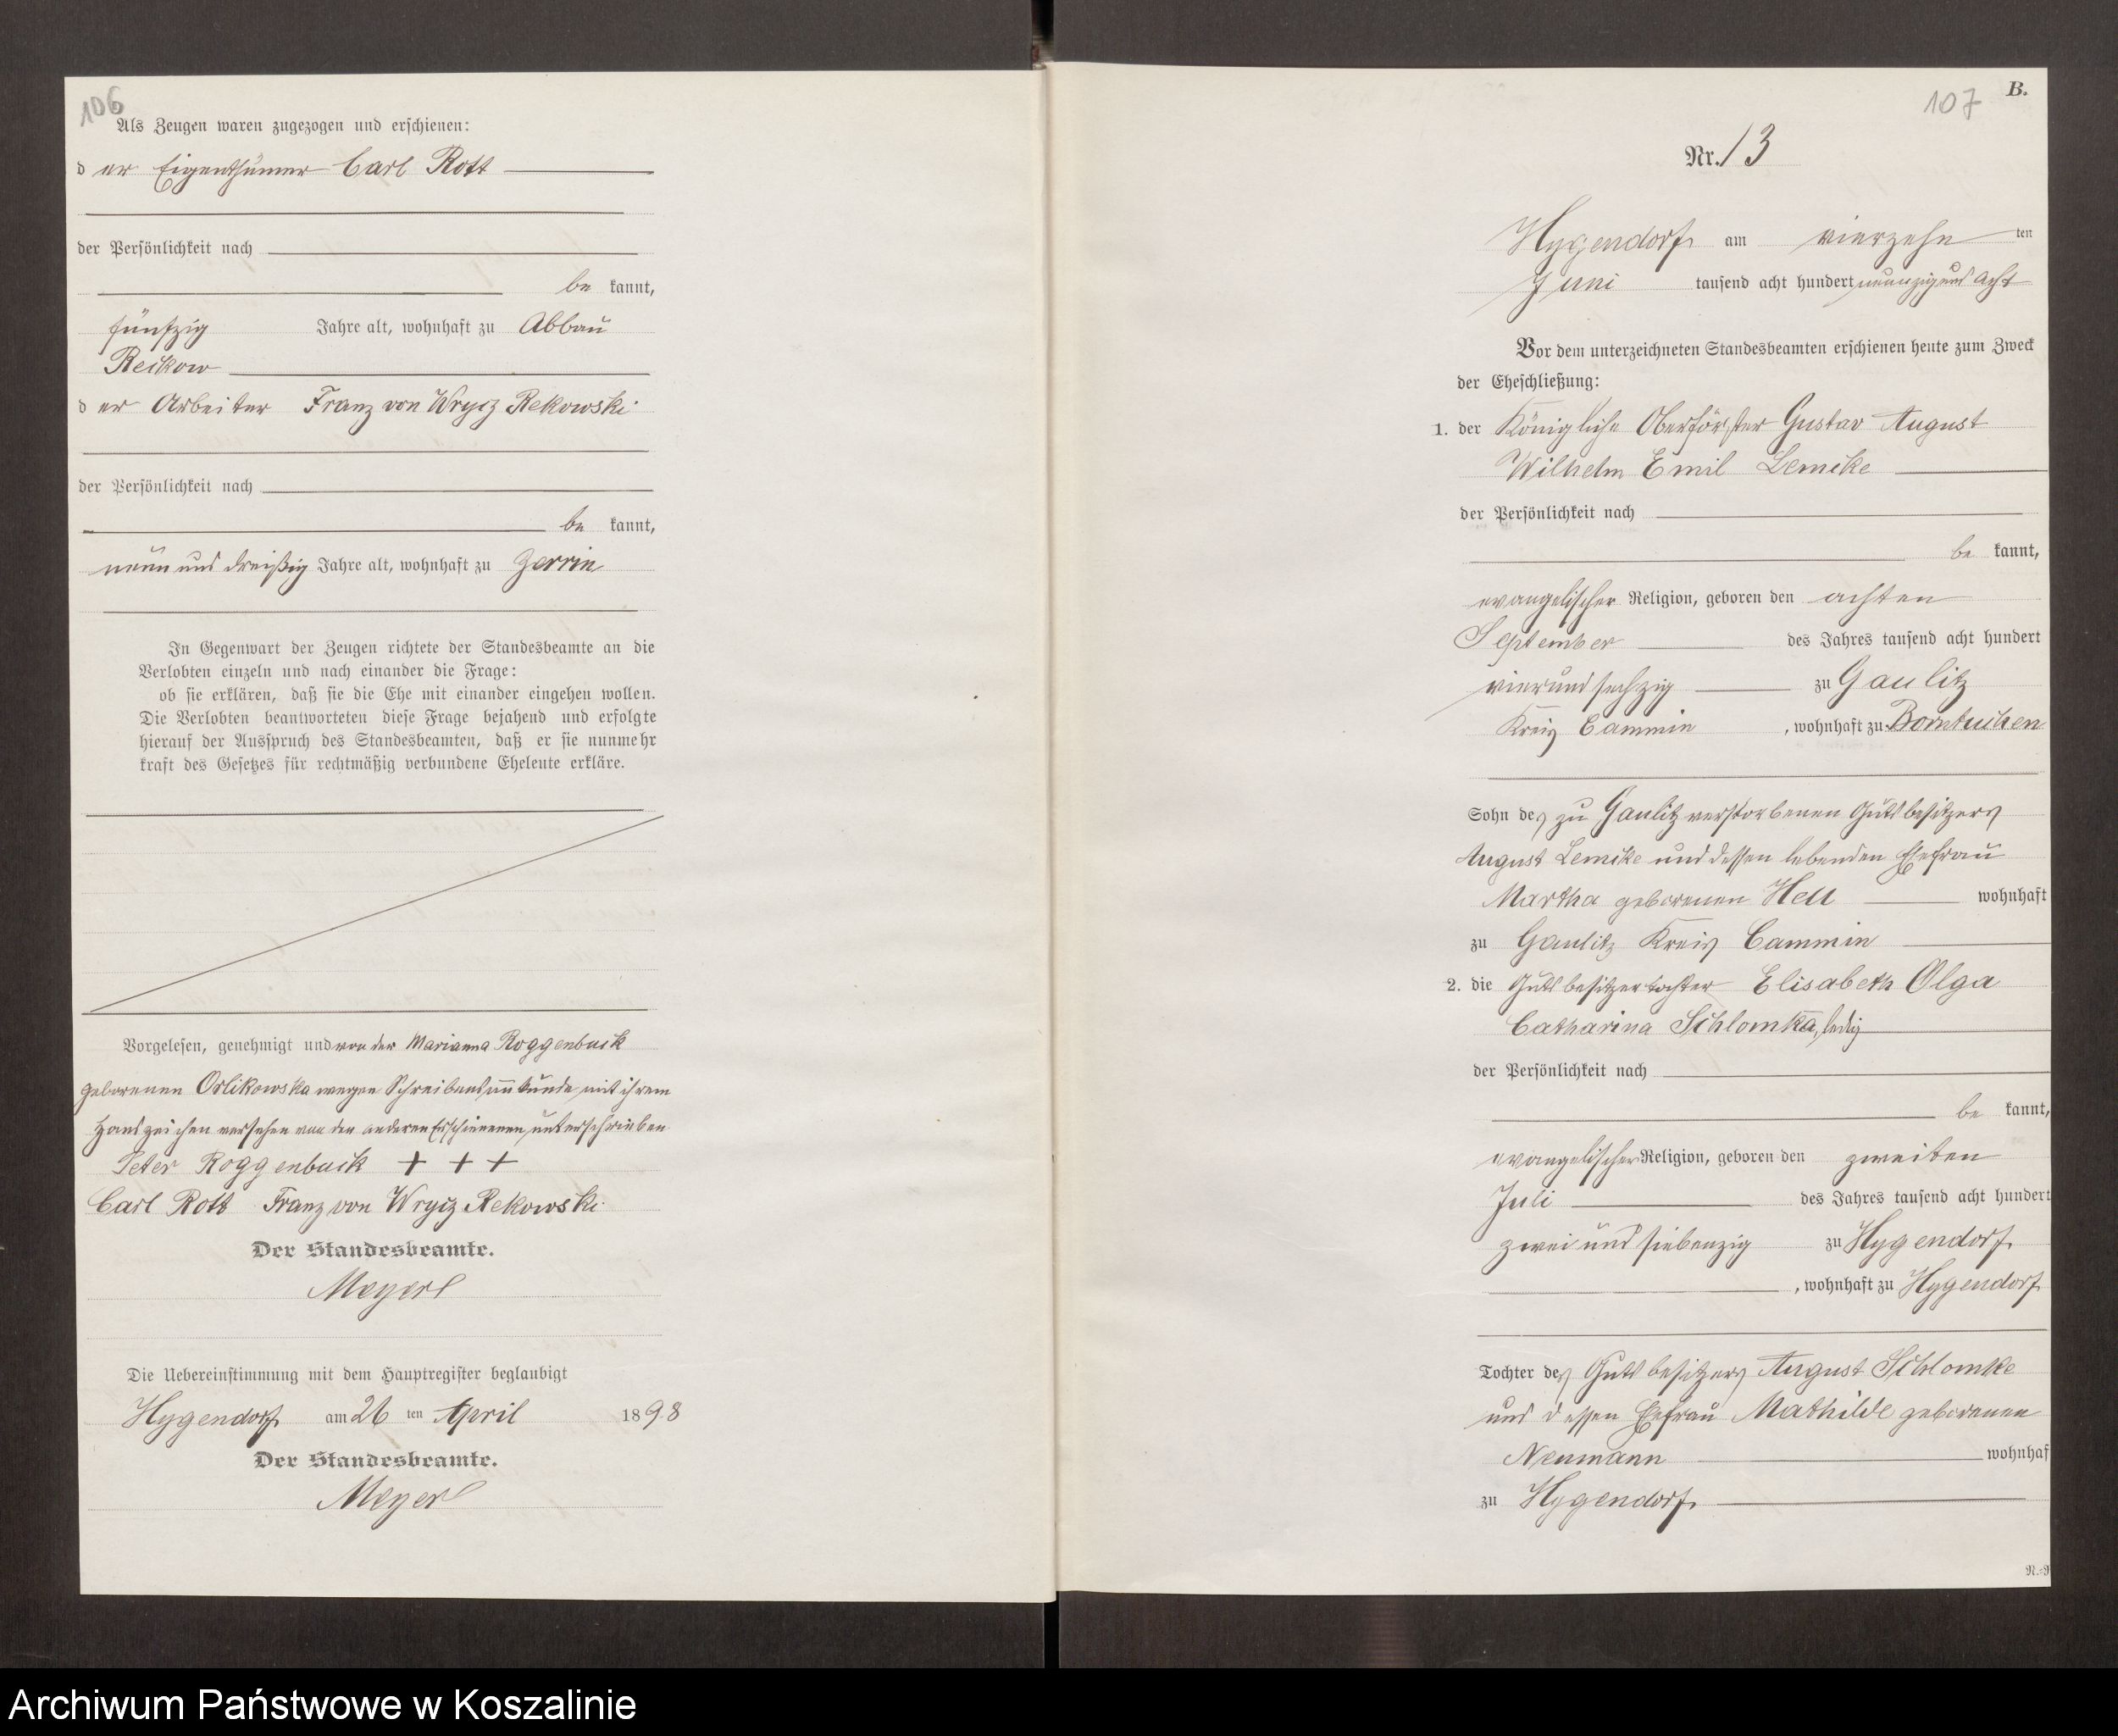 106
Als Zeugen waren zugezogen und erschienen:
der Eigenthümer Carl Rott
der Persönlichkeit nach
be kannt,
fünfzig Jahre alt, wohnhaft zu Abbau
Reckow
der Arbeiter Franz von Wrycz Rekowski
der Persönlichkeit nach
be kannt,
neun und dreißig Jahre alt, wohnhaft zu Zerrin
In Gegenwart der Zeugen richtete der Standesbeamte an die
Verlobten einzeln und nach einander die Frage:
ob sie erklären, daß sie die Ehe mit einander eingehen wollen.
Die Verlobten beantworteten diese Frage bejahend und erfolgte
hierauf der Ausspruch des Standesbeamten, daß er sie nunmehr
kraft des Gesetzes für rechtmäßig verbundene Eheleute erkläre.
Vorgelesen, genehmigt und von der Marianna Roggenbuck
geborenen Orlikowska wegen Schreibensunkunde mit ihrem
Handzeichen versehen von den anderen Erschienenen unterschrieben
Peter Roggenbuck + + +
Carl Rott Franz von Wrycz Rekowski
Der Standesbeamte.
Meyer
Die Uebereinstimmung mit dem Hauptregister beglaubigt
Hygendorf am 26 ten April 1898
Der Standesbeamte.
Meyer
107 B.
Nr. 13
Hygendorf am vierzehn ten
Juni tausend acht hundert neunzig und acht
Vor dem unterzeichneten Standesbeamten erschienen heute zum Zweck
der Eheschließung:
1. der Königliche Oberförster Gustav August
Wilhelm Emil Lemcke
der Persönlichkeit nach
be kannt,
evangelischer Religion, geboren den achten
September des Jahres tausend acht hundert
vierundsechzig zu Gaulitz
Kreis Cammin, wohnhaft zu Borntuchen
Sohn des zu Gaulitz verstorbenen Gutsbesitzers
August Lemcke und dessen lebenden Ehefrau
Martha geborenen Hell wohnhaft
zu Gaulitz Kreis Cammin
2. die Gutsbesitzertochter Elisabeth Olga
Catharina Schlomka, ledig
der Persönlichkeit nach
be kannt,
evangelischer Religion, geboren den zweiten
Juli des Jahres tausend acht hundert
zwei und siebenzig zu Hygendorf
, wohnhaft zu Hygendorf
Tochter des Gutsbesitzers August Schlomke
und dessen Ehefrau Mathilde geborenen
Neumann wohnhaf
zu Hygendorf
Archiwum Państwowe w Koszalinie